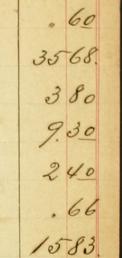 . 60
35 68.
3 80
9. 30
2 40
. 66
15 83.